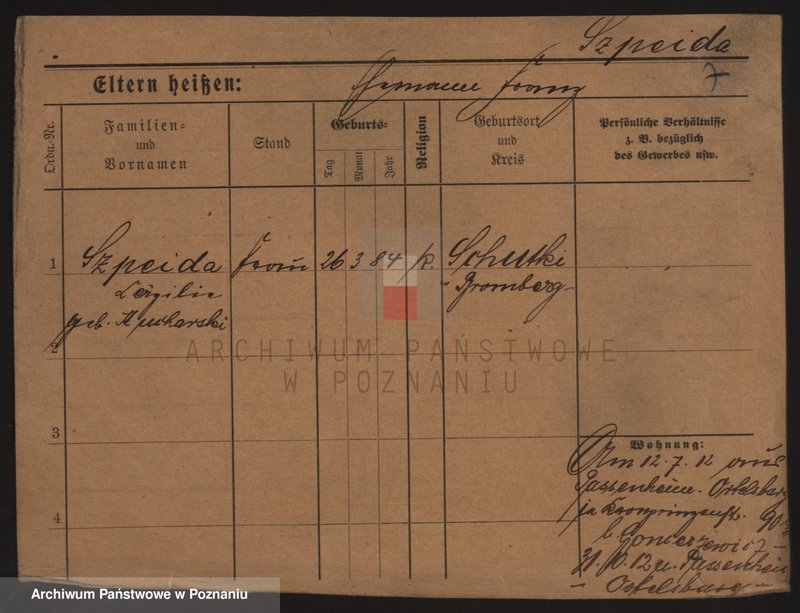 Szpeida
7
Eltern heißen: Ehemann Franz
Ordn.-Nr.
Familien-
und
Vornamen
Stand
Geburts-
Tag
Monat
Jahr
Religion
Geburtsort
und
Kreis
Persönliche Verhältnisse
z. B. bezüglich
des Gewerbes usw.
1 Szpeida Frau 26 3 84 k. Schutki
Cäzilie - Bromberg -
geb. Kucharski
2
ARCHIWUM PAŃSTWOWE
W POZNANIU
3
Wohnung:
Am 12.7.12 aus
Passenheim - Ortelsburg
in Kronprinzenstr. 90
b. Goncerzewicz -
31.10.12 n. Passenheim
- Ortelsburg -
4
Archiwum Państwowe w Poznaniu